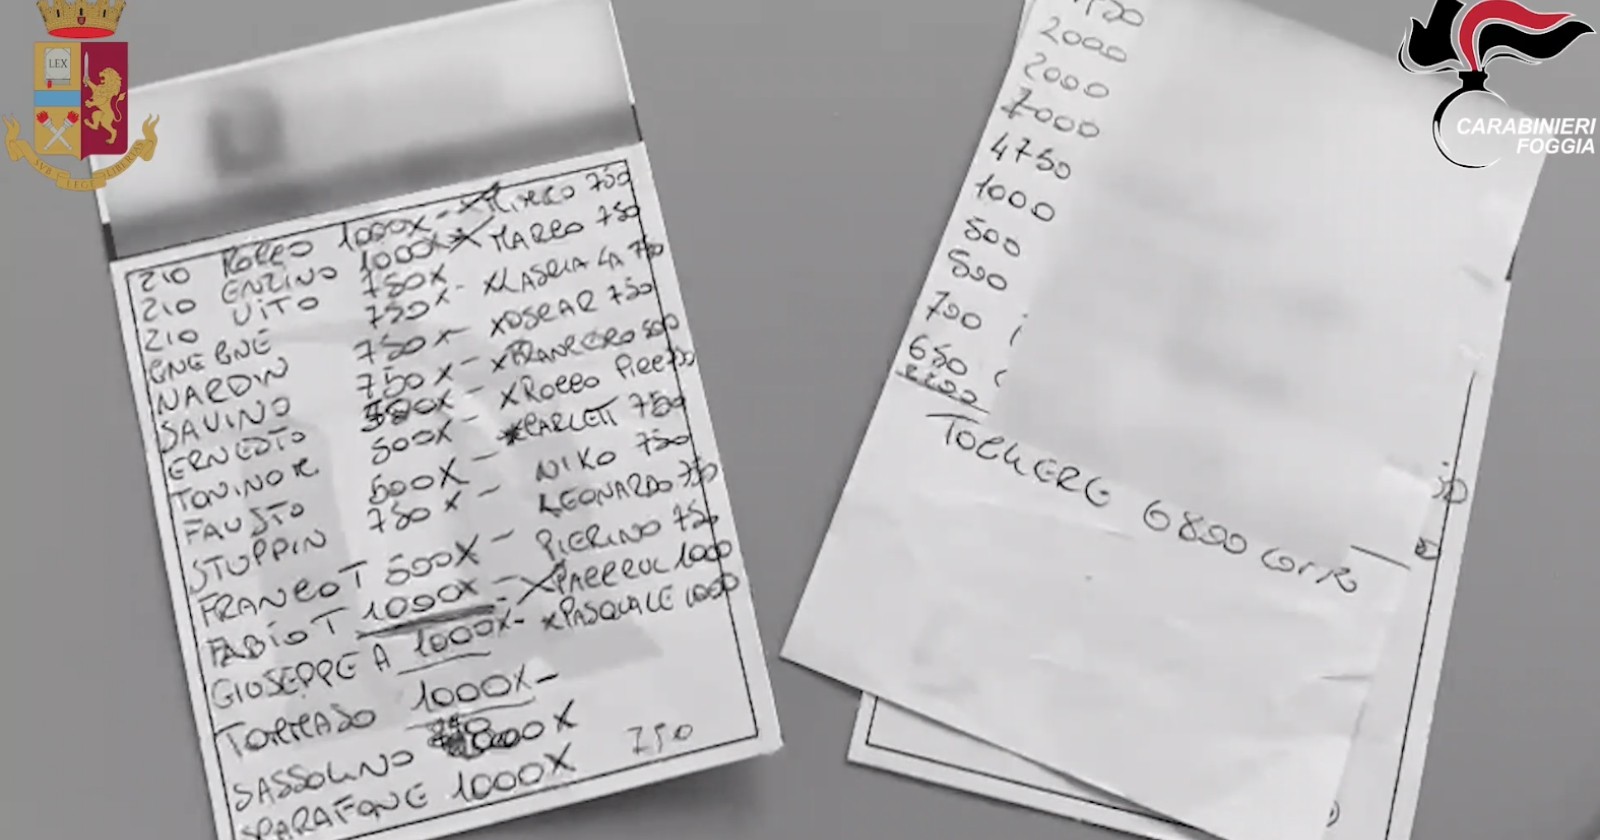 LEX
SVB LEGE LIBERTAS
CARABINIERI
FOGGIA
ZIO ROCCO 1000X - X MIRKO 750
ZIO ENZINO 1000X X MARCO 750
ZIO VITO 750X - X LASCIA LA 750
GNEGNE 750X - X OSCAR 750
NARDIN 750X - X FRANCESCO 500
SAVINO 750X - X ROCCO PIER 750
ERNESTO 500X - X CARLETT 750
TONINO R. 500X - NIKO 750
FAUSTO 500X - LEONARDO 750
STOPPIN 750X - PIERINO 750
FRANCO T 500X - X PARRUC 1000
FABIO T 1000X - X PASQUALE 1000
GIUSEPPE A 1000X -
TORMADO 1000X -
SASSOLINO 1000X
SPARAFONE 1000X 750
2000
2000
7000
4750
1000
500
500
700
650
TOCCHERG 6800